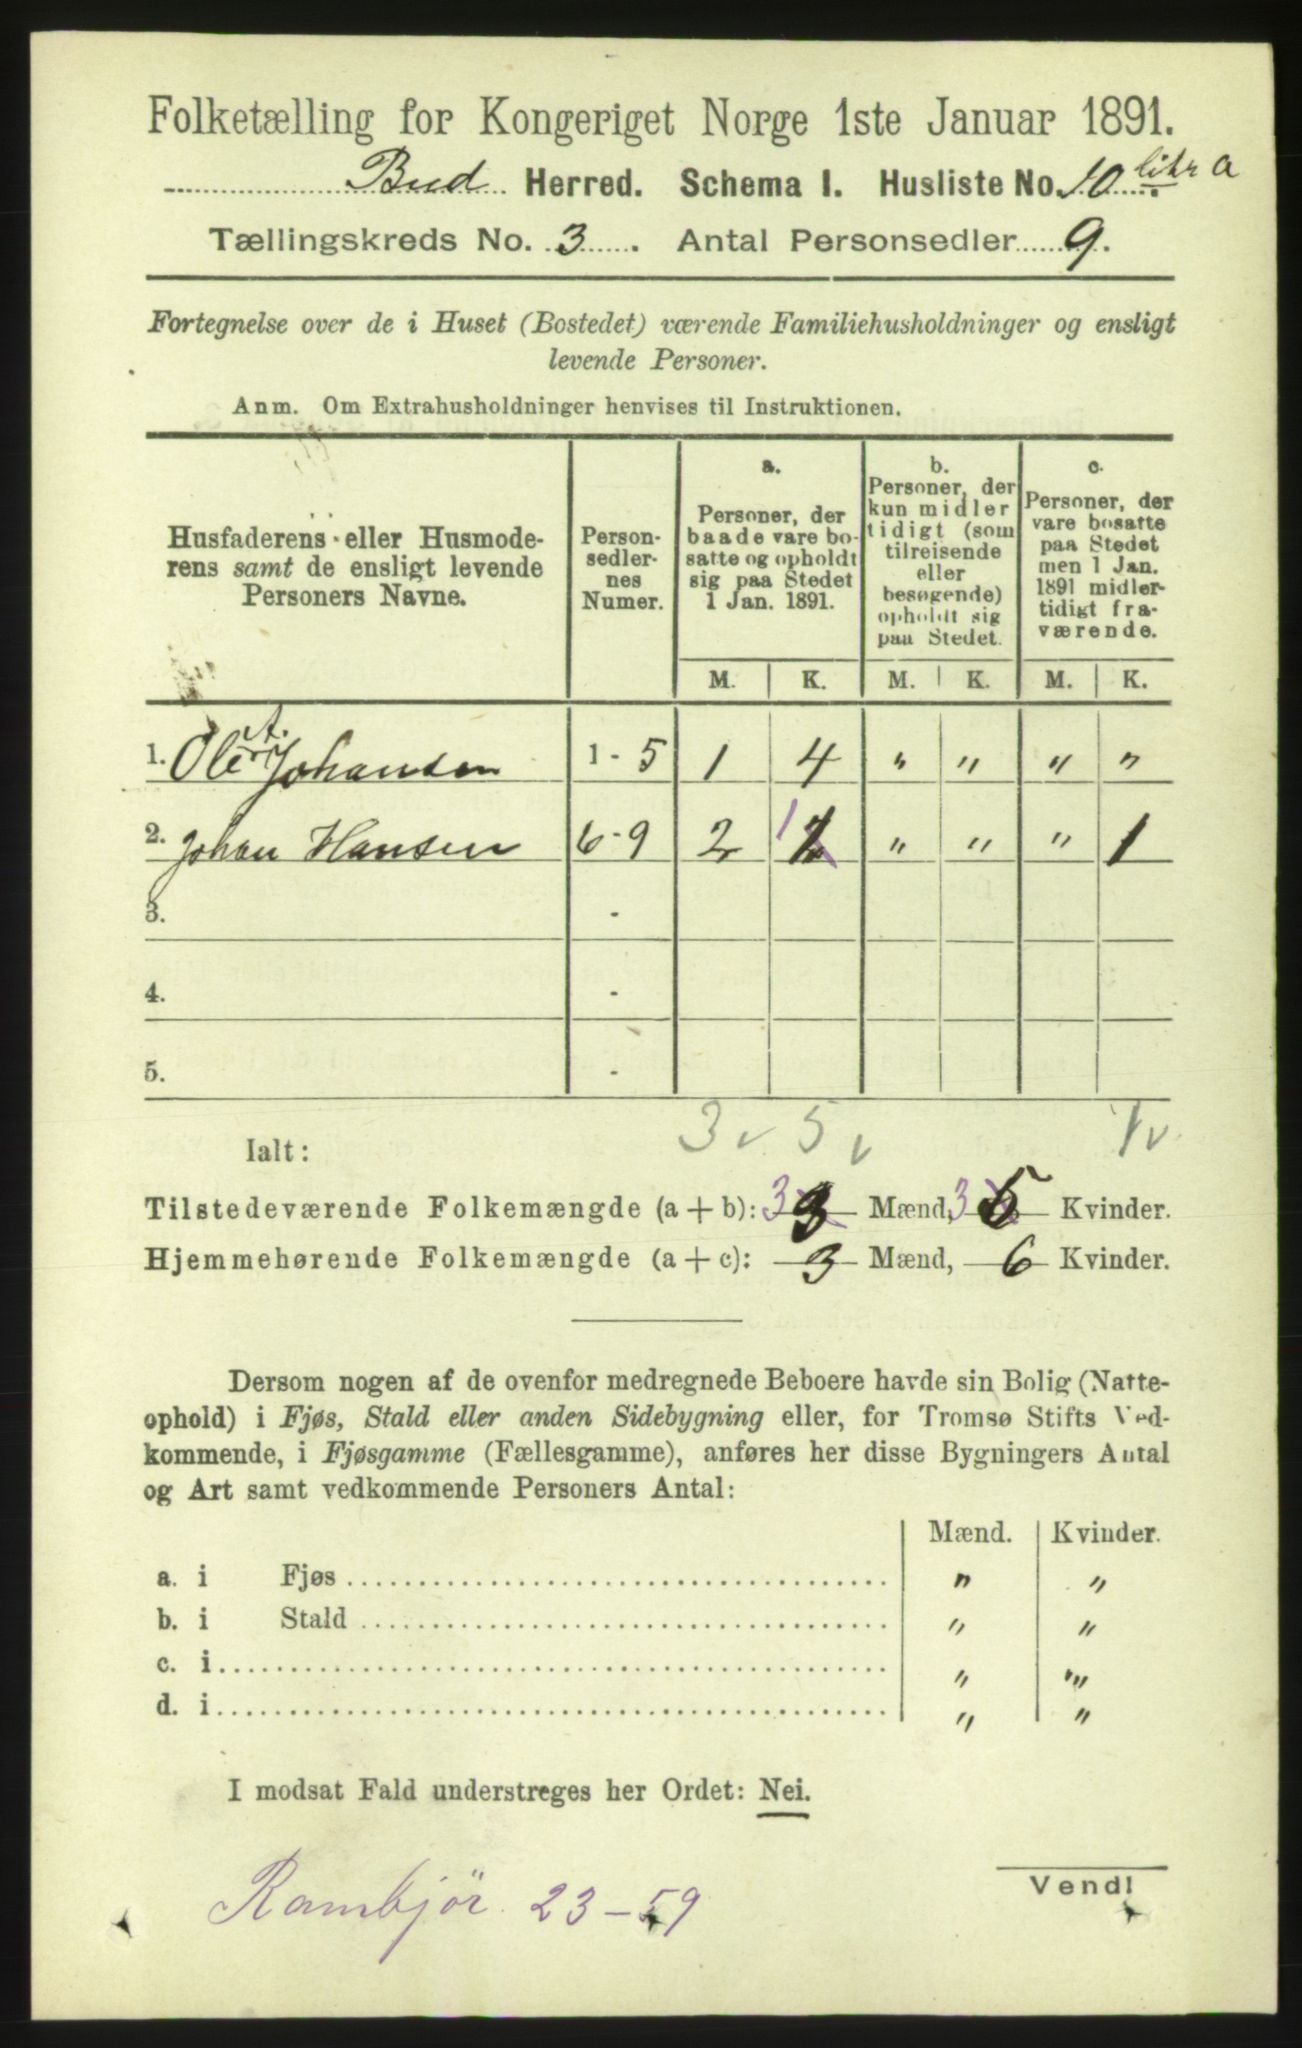 Folketælling for Kongeriget Norge 1ste Januar 1891.
Bud Herred. Schema I. Husliste No. 10 litr a
Tællingskreds No. 3. Antal Personsedler 9.
Fortegnelse over de i Huset (Bostedet) værende Familiehusholdninger og ensligt
levende Personer.
Anm. Om Extrahusholdninger henvises til Instruktionen.
Husfaderens eller Husmode-
rens samt de ensligt levende
Personers Navne.
Person-
sedler-
nes
Numer.
a.
Personer, der
baade vare bo-
satte og opholdt
sig paa Stedet
1 Jan. 1891.
b.
Personer, der
kun midler
tidigt (som
tilreisende
eller
besøgende)
opholdt sig
paa Stedet.
c.
Personer, der
vare bosatte
paa Stedet
men 1 Jan.
1891 midler-
tidigt fra-
værende.
M. K. M. K. M. K.
1. Ole A. Johansen 1 - 5 1 4 " " " "
2. Johan Hansen 6 - 9 2 1 " " " 1
3. -
4. -
5. -
3 v 5 v 1 v
Ialt:
Tilstedeværende Folkemængde (a + b): 3 3 Mænd, 3 5 Kvinder.
Hjemmehørende Folkemængde (a + c): 3 Mænd, 6 Kvinder.
Dersom nogen af de ovenfor medregnede Beboere havde sin Bolig (Natte-
ophold) i Fjøs, Stald eller anden Sidebygning eller, for Tromsø Stifts Ved-
kommende, i Fjøsgamme (Fællesgamme), anføres her disse Bygningers Antal
og Art samt vedkommende Personers Antal:
Mænd. Kvinder.
a. i Fjøs " "
b. i Stald " "
c. i " "
d. i " "
I modsat Fald understreges her Ordet: Nei.
Vend!
Rambjör 23-59